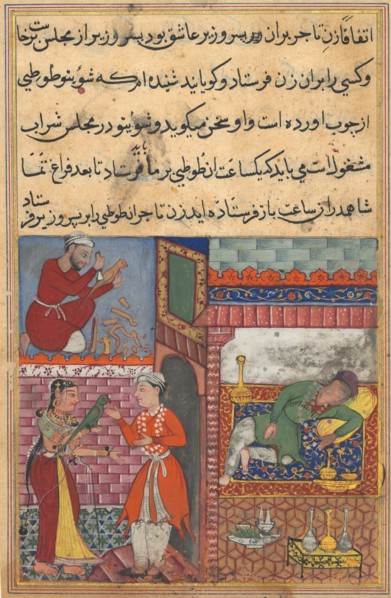 اتفاقا زن تاجر بران پسر وزیر عاشق بود پسر وزیر از مجلس برخاست
وکسی را بران زن فرستاد و کویانید شنیده ام که شوی تو طوطی
از چوب اورده است و او سخن میکوید و شوی تو در مجلس شراب
مشغول است می باید که یکساعت ان طوطی بر ما فرستاد تا بعد فراغ تماشا
هد از ساعت باز فرستاده اید زن تاجر ان طوطی را بر پسر وزیر فرستاد